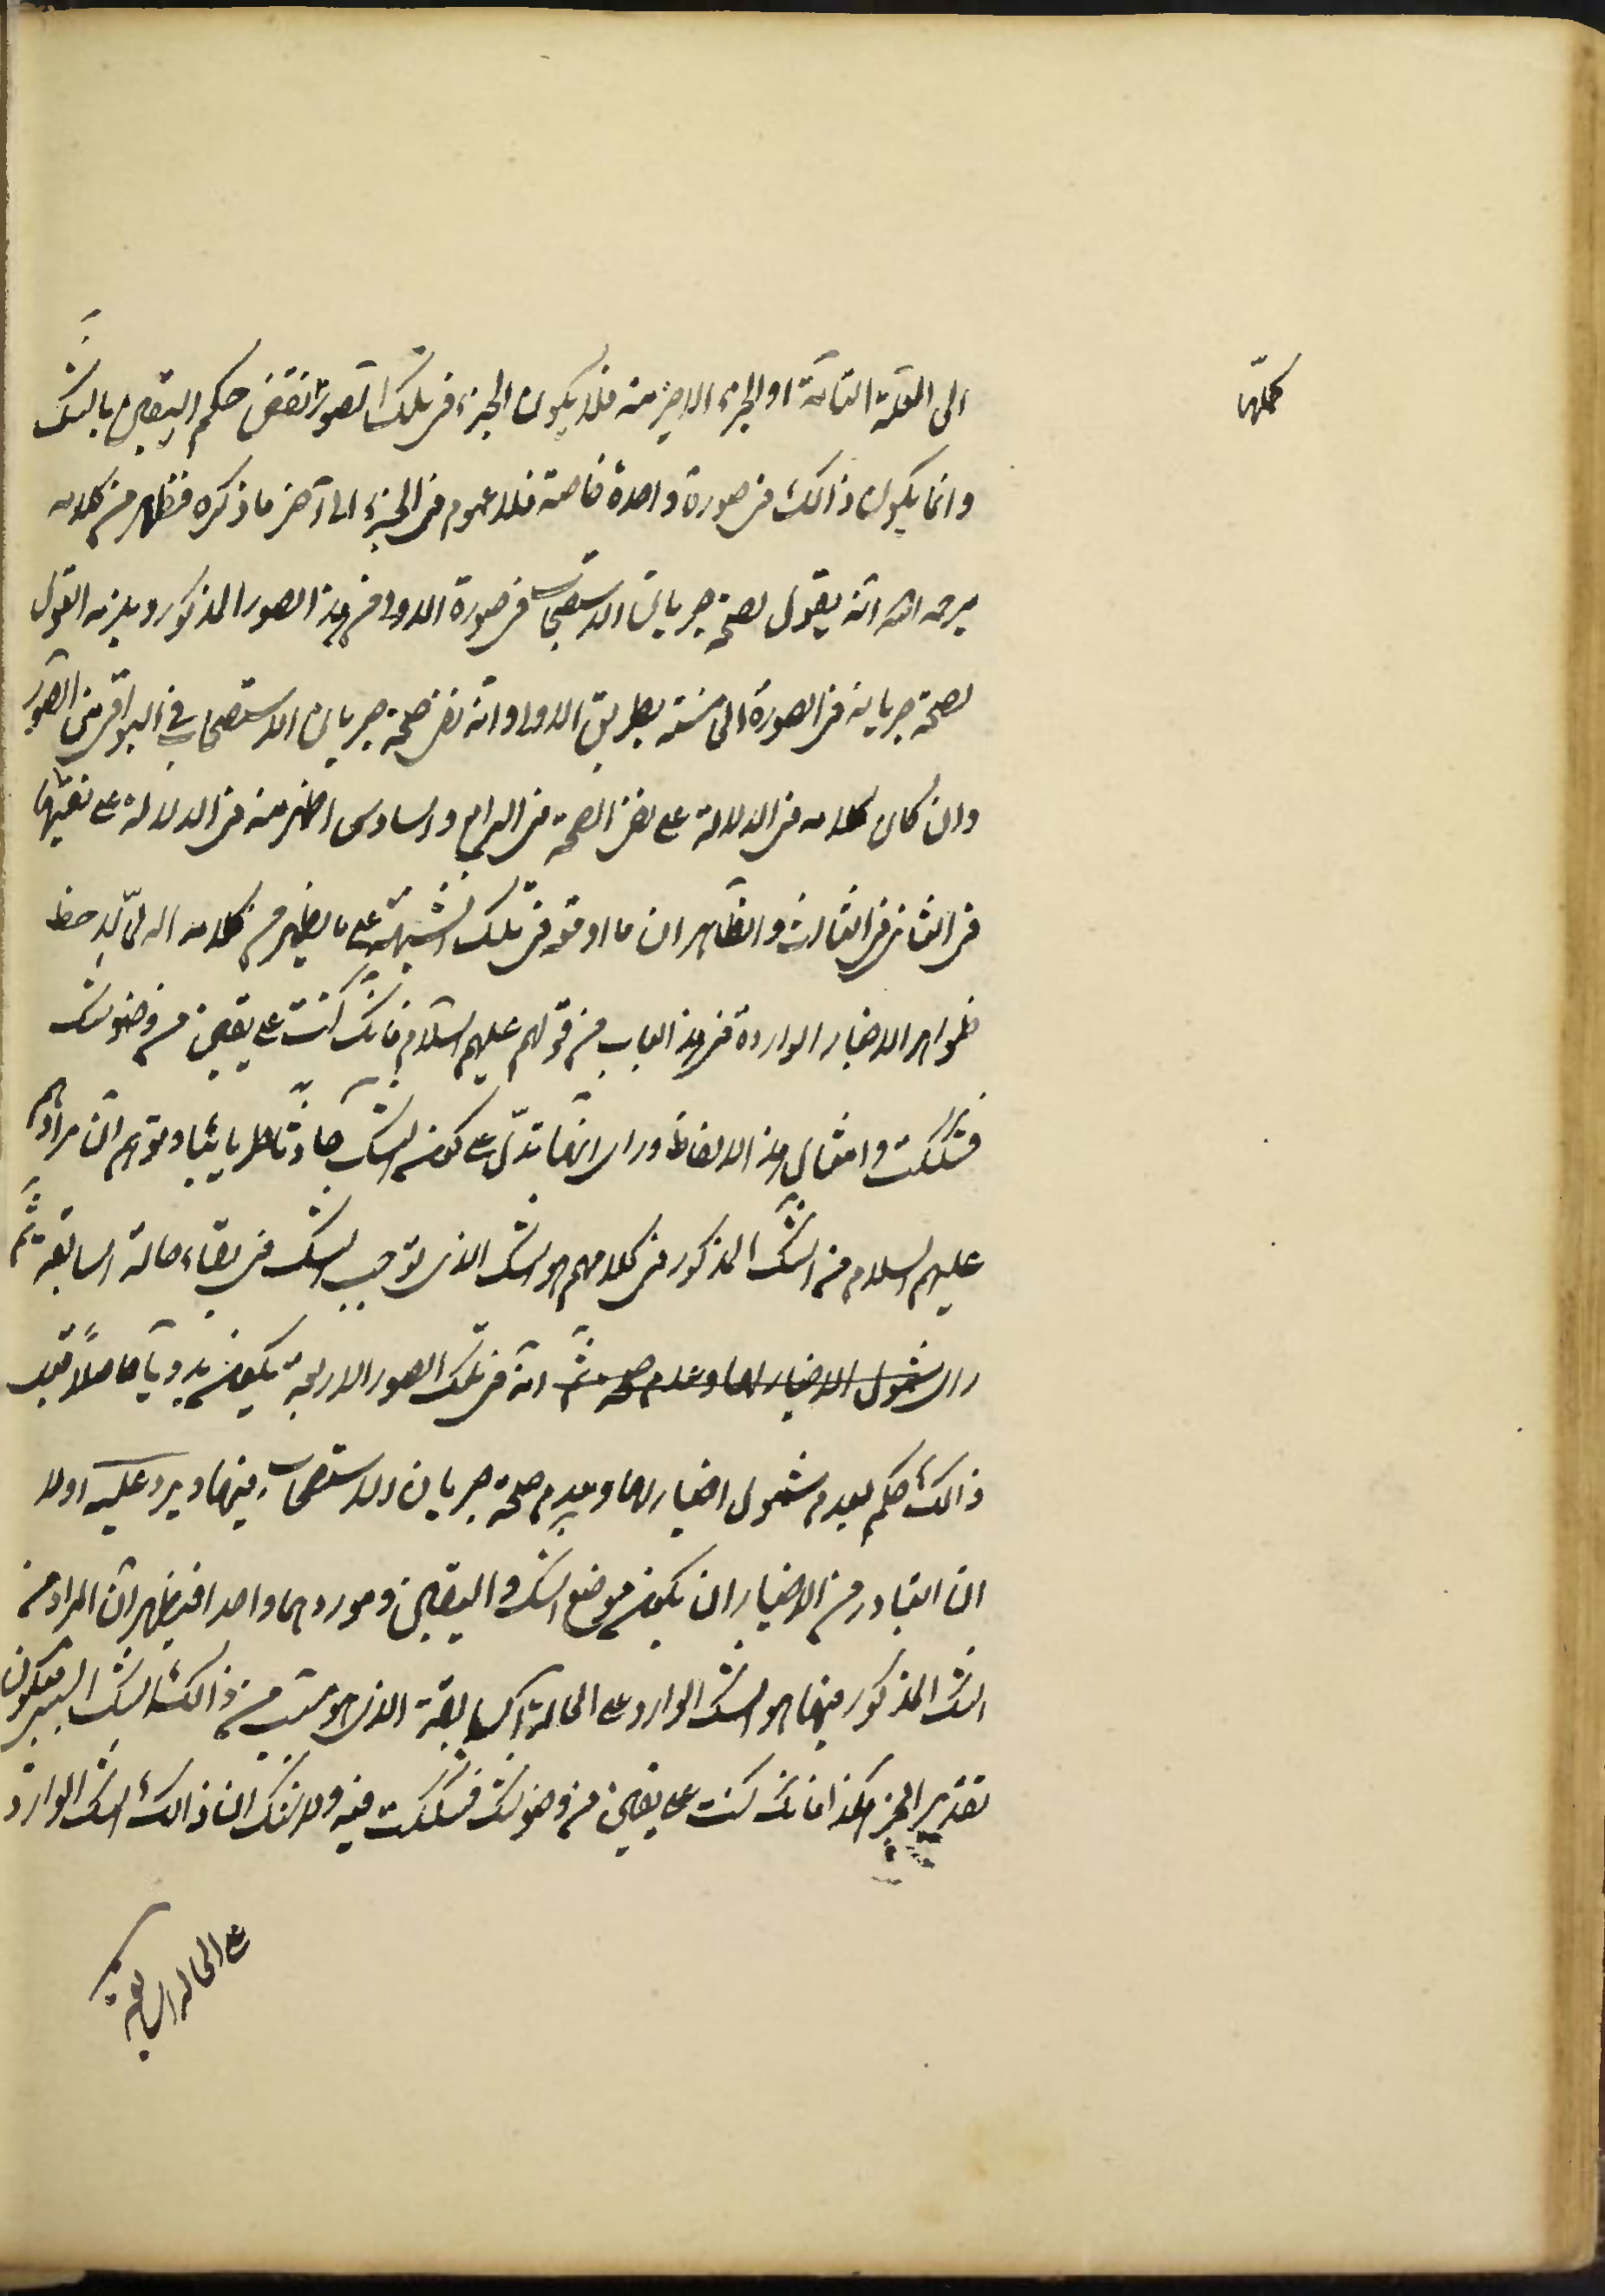 الى العلة التامة او الجزء الاخير منه فلا يكون الخبر فى تلك الصور نقض حكم اليقين بالشك
كلها
وانما يكون ذالك فى صورة واحدة خاصة فلا عموم فى الخبر الى آخر ما ذكره فظهر من كلامه
يرحمه الله انه يقول بصحة جريان الاستصحاب فى صورة الاولى من هذا الصور المذكور ويلزمه القول
بصحة جريانه فى الصورة الخامسة بطريق الاولى وانه نفى صحة جريان الاستصحاب في البواقى من الصور
وان كان كلامه فى الدلالة على نفى الصحة فى الرابع والسادس اظهر منه فى الدلالة على نفيها
فى الثانى فى الثالث والظاهر ان ما اوقعه فى تلك الشبهة على ما يظهر من كلامه انه لما لاحظ
ظواهر الاخبار الواردة فى هذا الباب من قولهم عليهم السلام فانك كنت على يقين من وضوئك
فشككت وامثال هذا الالفاظ وراى انها تدل على كون الشك حادثا طاريا وتوهم ان مرادهم
عليهم السلام من الشك المذكور فى كلامهم هو الشك الذى توجب الشك فى بقاء حالة السابقة ثم
راى شمول الاخبار لها وعدم صحة ثم انه فى تلك الصور الاربعة يكون بدويا حاصلاً قبل
ذالك حكم بعدم شمول اخبار لها وبعدم صحة جريان الاستصحاب فيها ويرد عليه اولا
ان المتبادر من الاخبار ان يكون موضع الشك واليقين وموردهما واحدا فيظهر ان المراد من
الشك المذكور فيها هو الشك الوارد على الحالة السابقة الذى هو من ذالك الشك فيكون
تقدير الخبر هكذا فانك كنت على يقين من وضوئك فشككت فيه ولا شك ان ذالك الشك الوارد
على الحالة السابقة